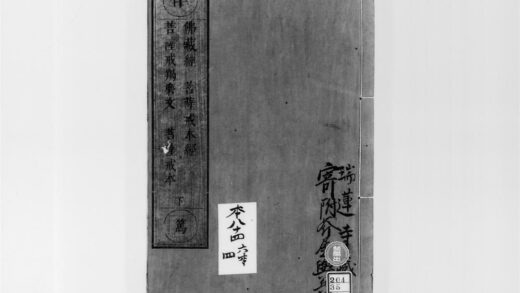 佛藏經 菩薩戒本經
菩薩戒羯磨文 菩薩戒本
下
篤
瑞蓮寺藏
寄附
本八十四
六本
四
204
35